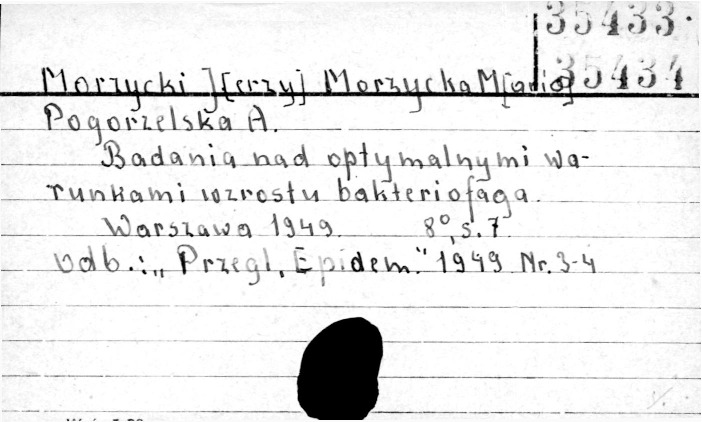 35433.
35434
Morzycki J[erzy] Morzycka M[aria]
Pogorzelska A.
Badania nad optymalnymi wa-
runkami wzrostu bakteriofaga.
Warszawa 1949. 8°, s. 7.
Odb.: „Przegl. Epidem." 1949 Nr. 3-4